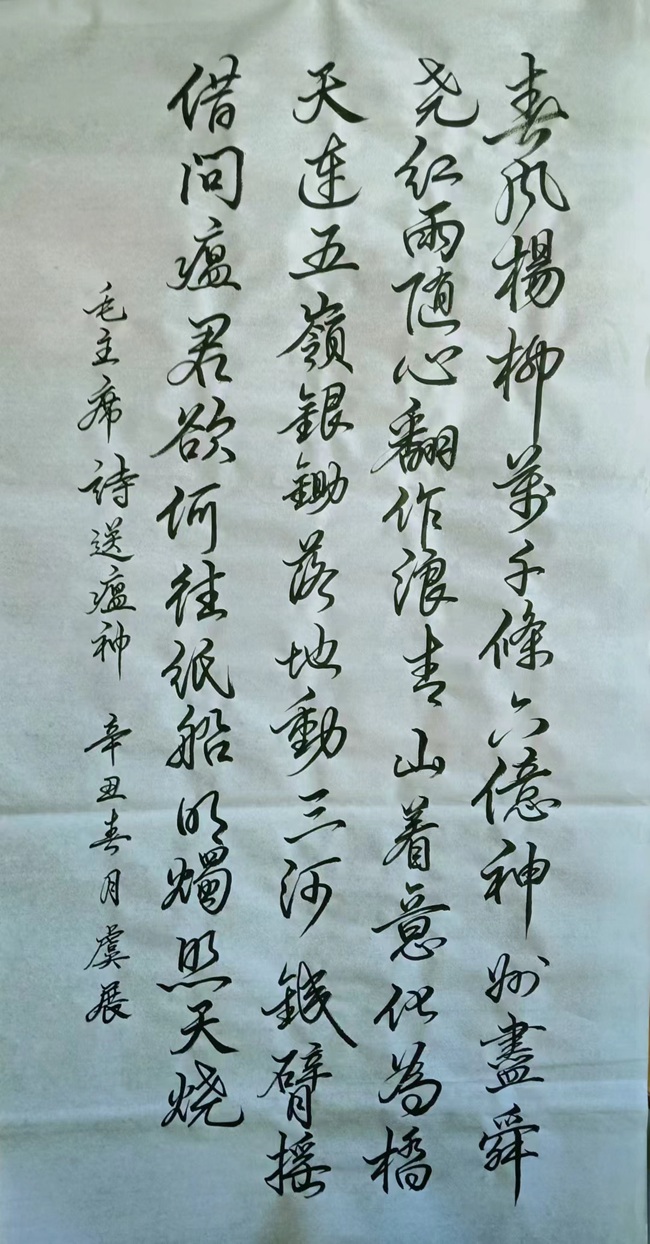 春風楊柳萬千條六億神州盡舜
尧红雨随心翻作浪青山着意化為橋
天連五嶺銀鋤落地動三河鉄臂摇
借问瘟君欲何往纸船明燭照天烧
毛主席詩送瘟神 辛丑春月虞展